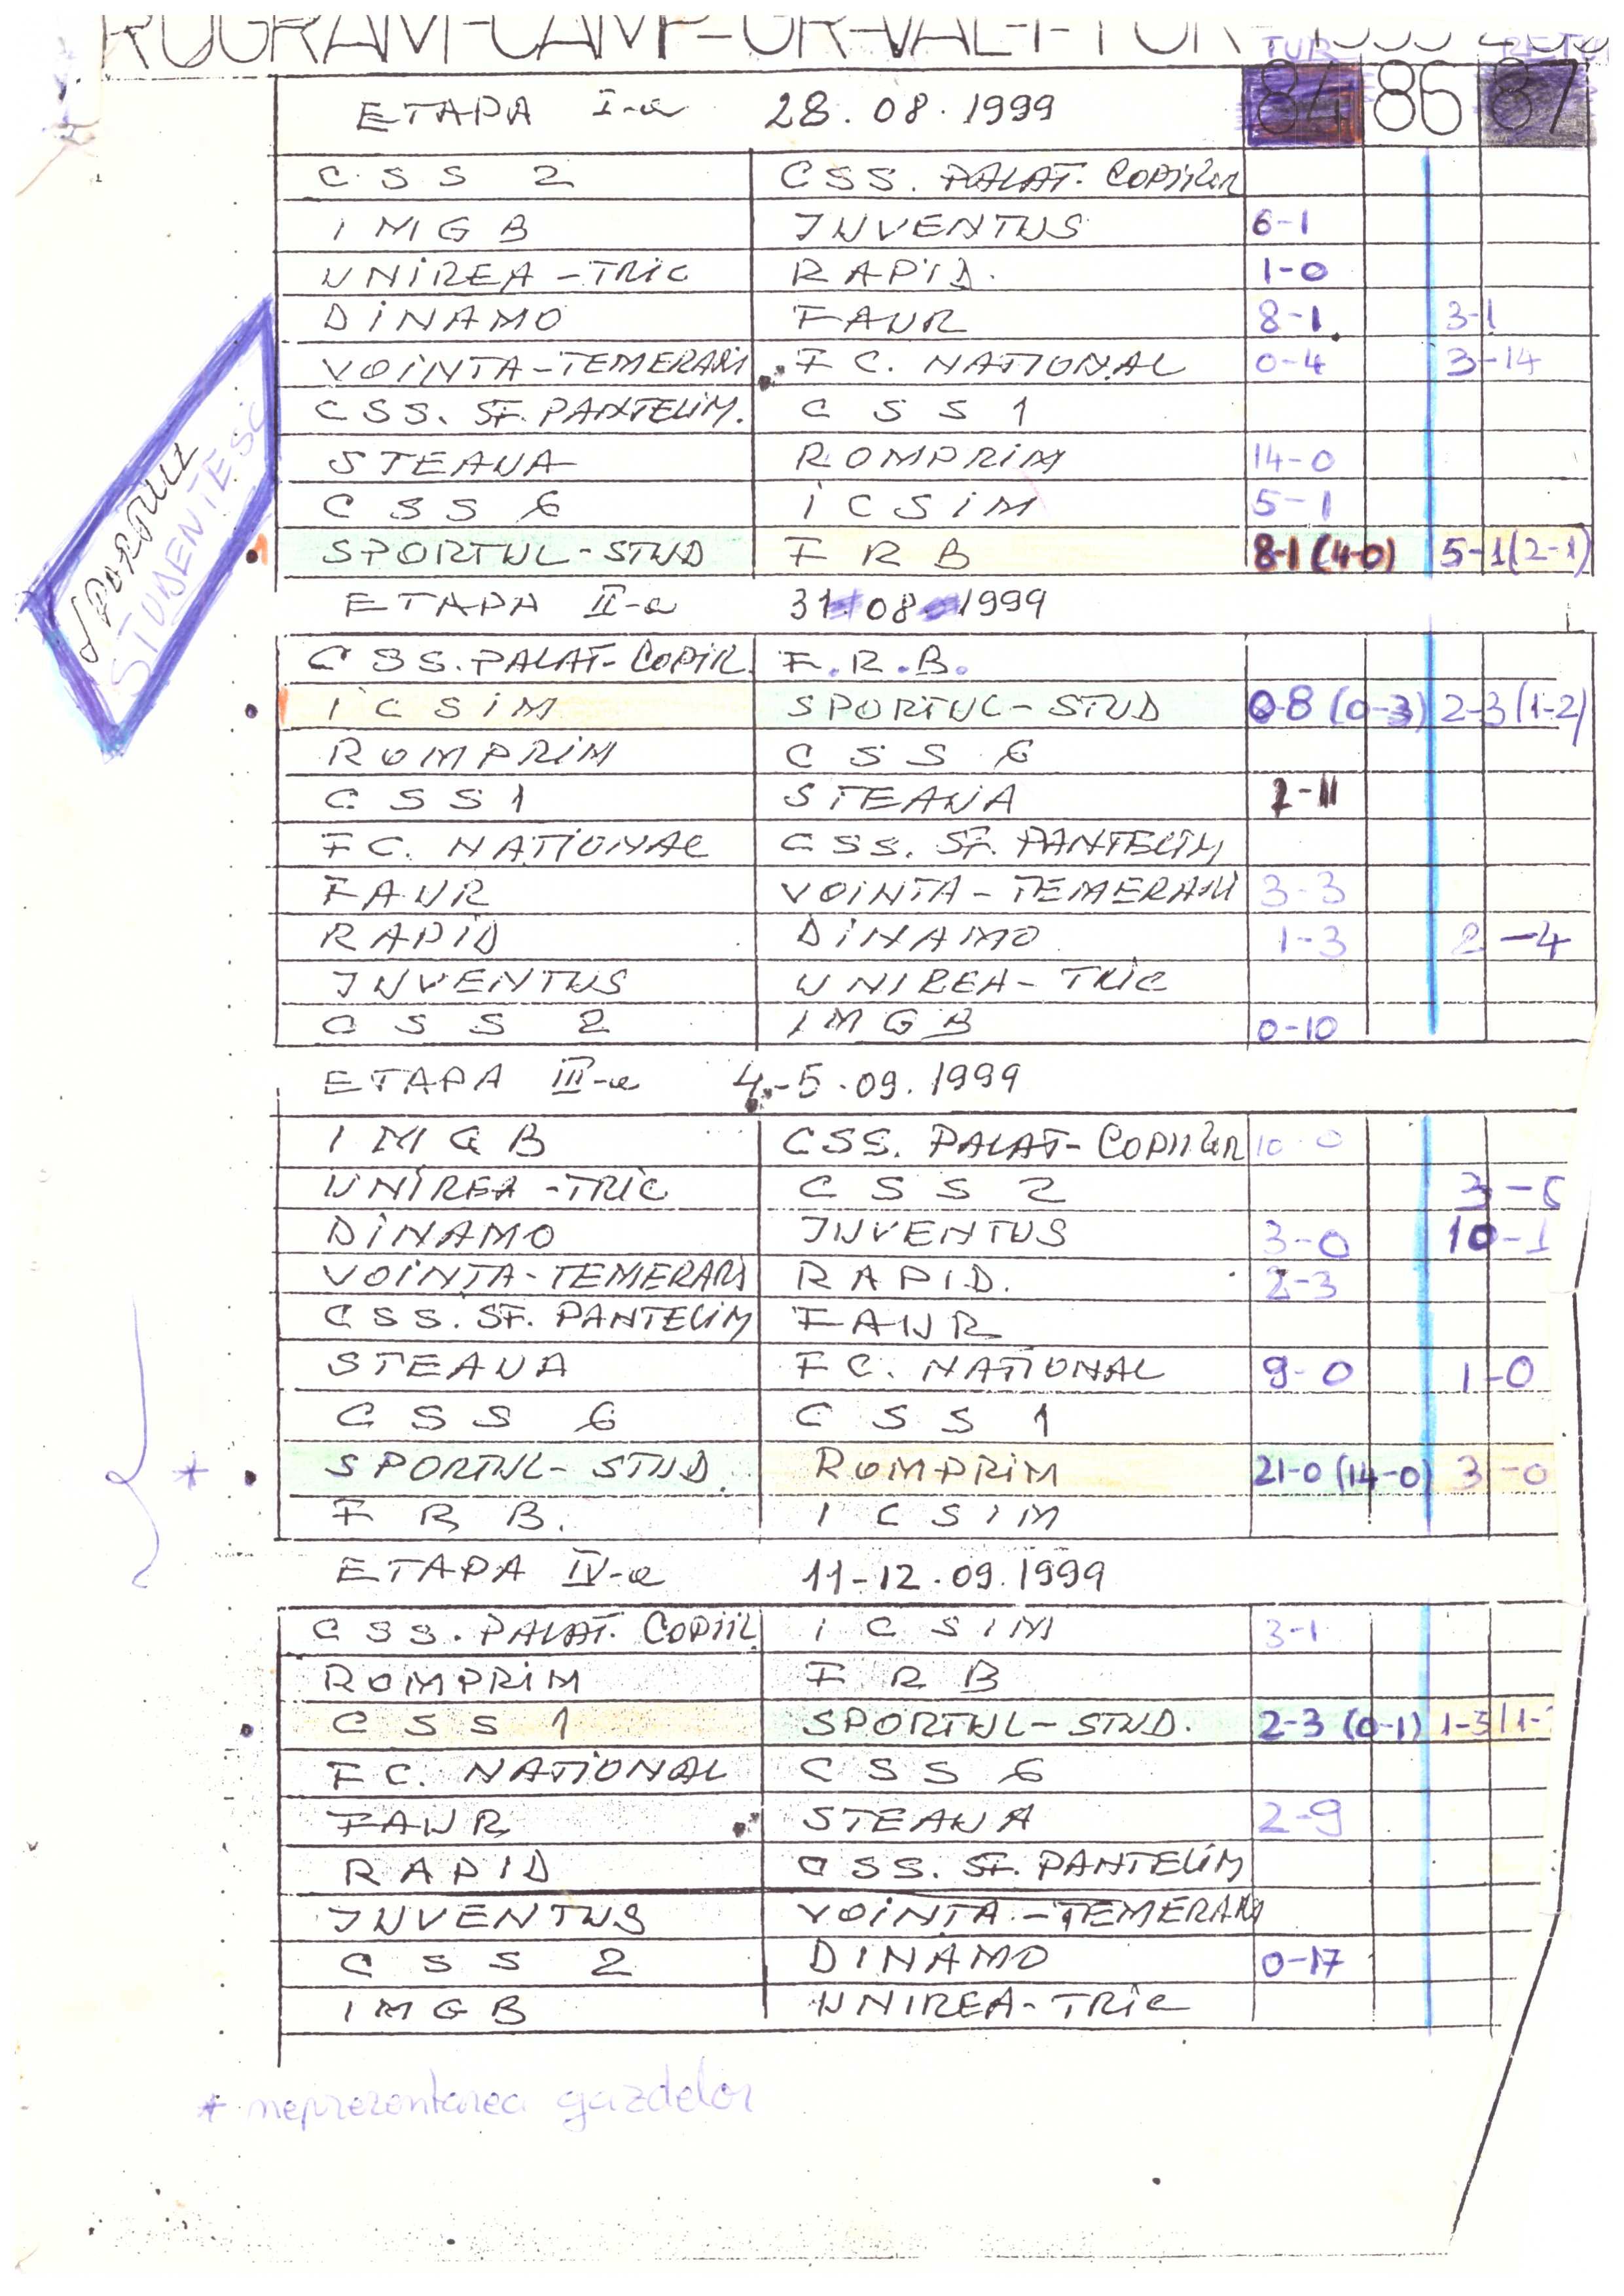 PROGRAM-CAMP-GR-VAL-I-TUR 1999
TUR RETUR
ETAPA I-a 28.08.1999 84 86 87
CSS 2 CSS. PALAT. COPIILOR
IMGB JUVENTUS 6-1
UNIREA-TRIC RAPID. 1-0
DINAMO FAUR 8-1 3-1
VOINTA-TEMERARI FC. NATIONAL 0-4 3-14
CSS. SF. PANTELIM. CSS 1
STEAUA ROMPRIM 14-0
CSS 6 ICSIM 5-1
SPORTUL-STUD FRB 8-1 (4-0) 5-1 (2-1)
SPORTUL
STUDENTESC
ETAPA II-a 31 08 1999
CSS. PALAT-COPIIL F.R.B.
ICSIM SPORTUL-STUD 0-8 (0-3) 2-3 (1-2)
ROMPRIM CSS 6
CSS 1 STEAUA 2-11
FC. NATIONAL CSS. SF. PANTELIM
FAUR VOINTA-TEMERARI 3-3
RAPID DINAMO 1-3 2-4
JUVENTUS UNIREA-TRIC
CSS 2 IMGB 0-10
ETAPA III-a 4-5.09.1999
IMGB CSS. PALAT-COPIILOR 10-0
UNIREA-TRIC CSS 2 3-
DINAMO JUVENTUS 3-0 10-1
VOINTA-TEMERARI RAPID. 2-3
CSS. SF. PANTELIM FAUR
STEAUA FC. NATIONAL 9-0 1-0
CSS 6 CSS 1
* SPORTUL-STUD. ROMPRIM 21-0 (14-0) 3-0
FRB. ICSIM
ETAPA IV-a 11-12.09.1999
CSS. PALAT. COPIIL ICSIM 3-1
ROMPRIM FRB
CSS 1 SPORTUL-STUD. 2-3 (0-1) 1-3 (1-
FC. NATIONAL CSS 6
FAUR STEAUA 2-9
RAPID CSS. SF. PANTELIM
JUVENTUS VOINTA-TEMERARI
CSS 2 DINAMO 0-17
IMGB UNIREA-TRIC
* neprezentarea gazdelor